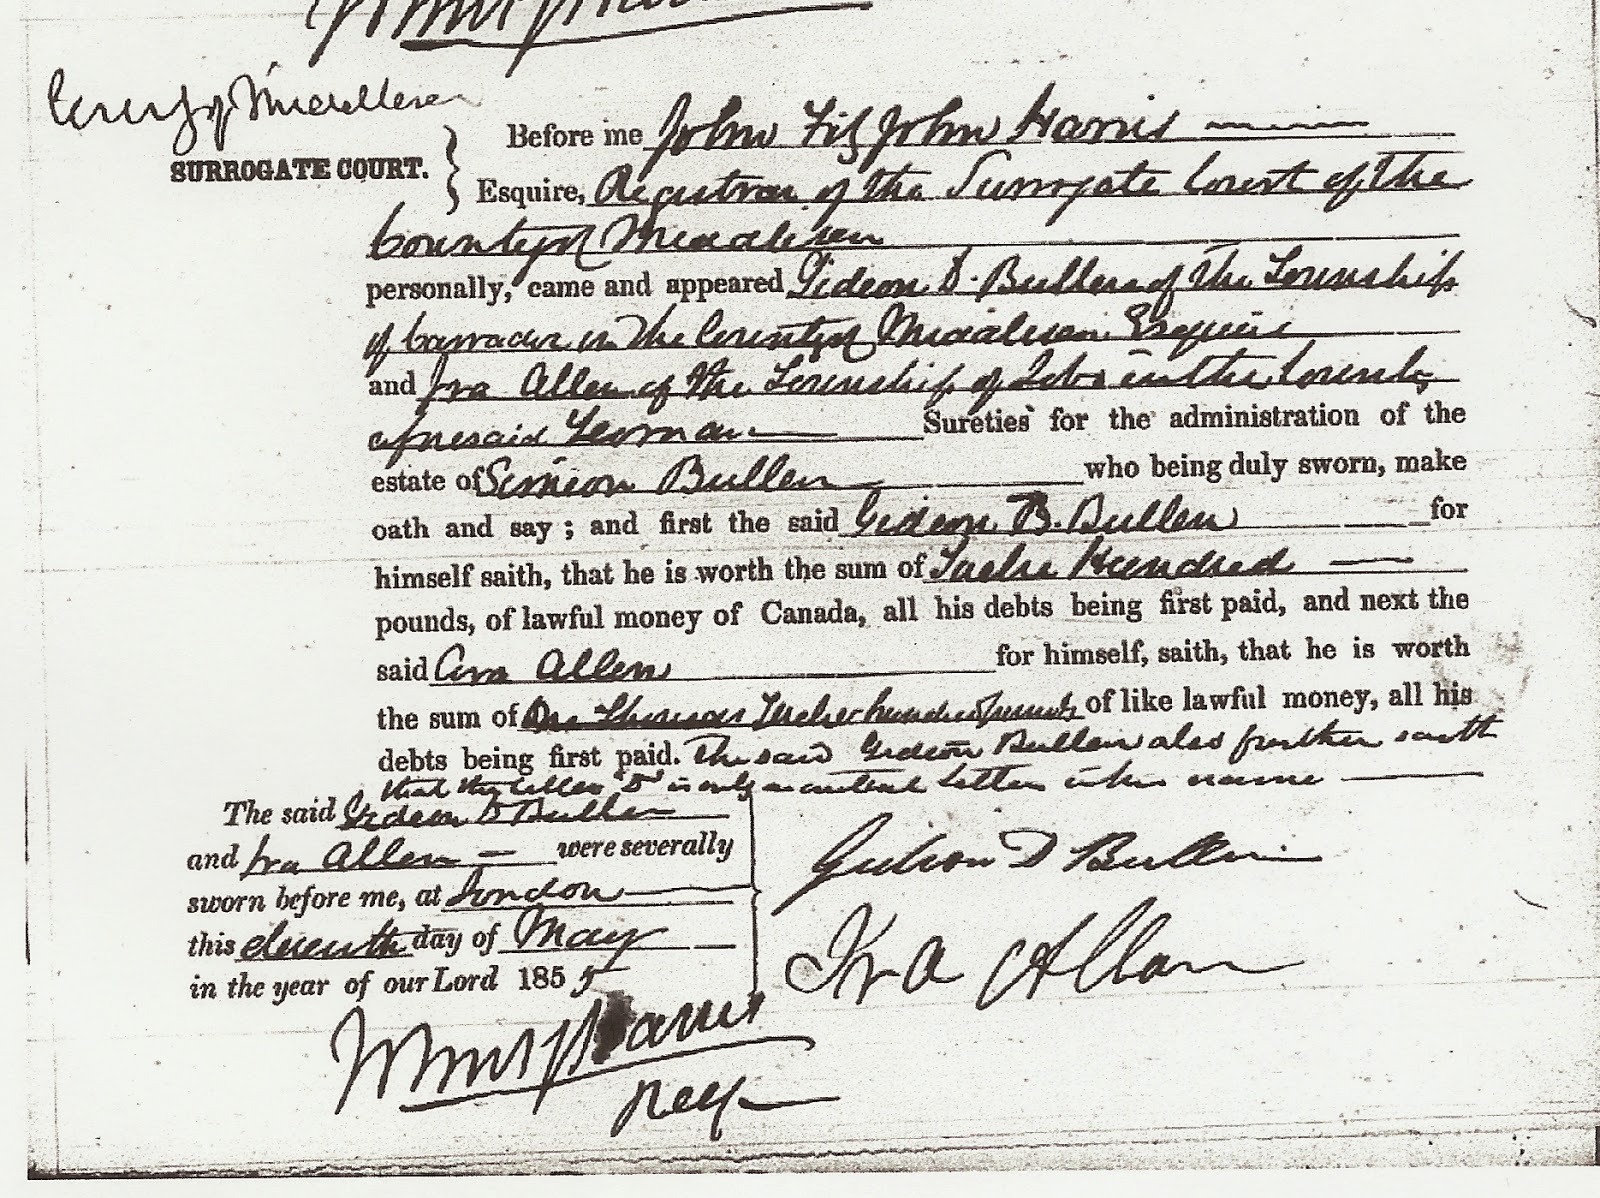 County of Middlesex
Before me John Fitz John Harris
SURROGATE COURT. Esquire, Registrar of the Surrogate Court of the
County of Middlesex
personally, came and appeared Gideon D. Bullen of the Township
of Carradoc in the County of Middlesex Esquire
and Ira Allen of the Township of Lobo in the County
aforesaid Yeoman Sureties for the administration of the
estate of Simeon Bullen who being duly sworn, make
oath and say ; and first the said Gideon B. Bullen for
himself saith, that he is worth the sum of Twelve Hundred
pounds, of lawful money of Canada, all his debts being first paid, and next the
said Ira Allen for himself, saith, that he is worth
the sum of One Thousand Twelve hundred pounds of like lawful money, all his
debts being first paid. The said Gideon Bullen also further saith
that the letter "D" is only letter in his name
The said Gideon D Bullen
and Ira Allen were severally
sworn before me, at London
this eleventh day of May
in the year of our Lord 1855
Gideon D Bullen
Ira Allan
Harris
Regr